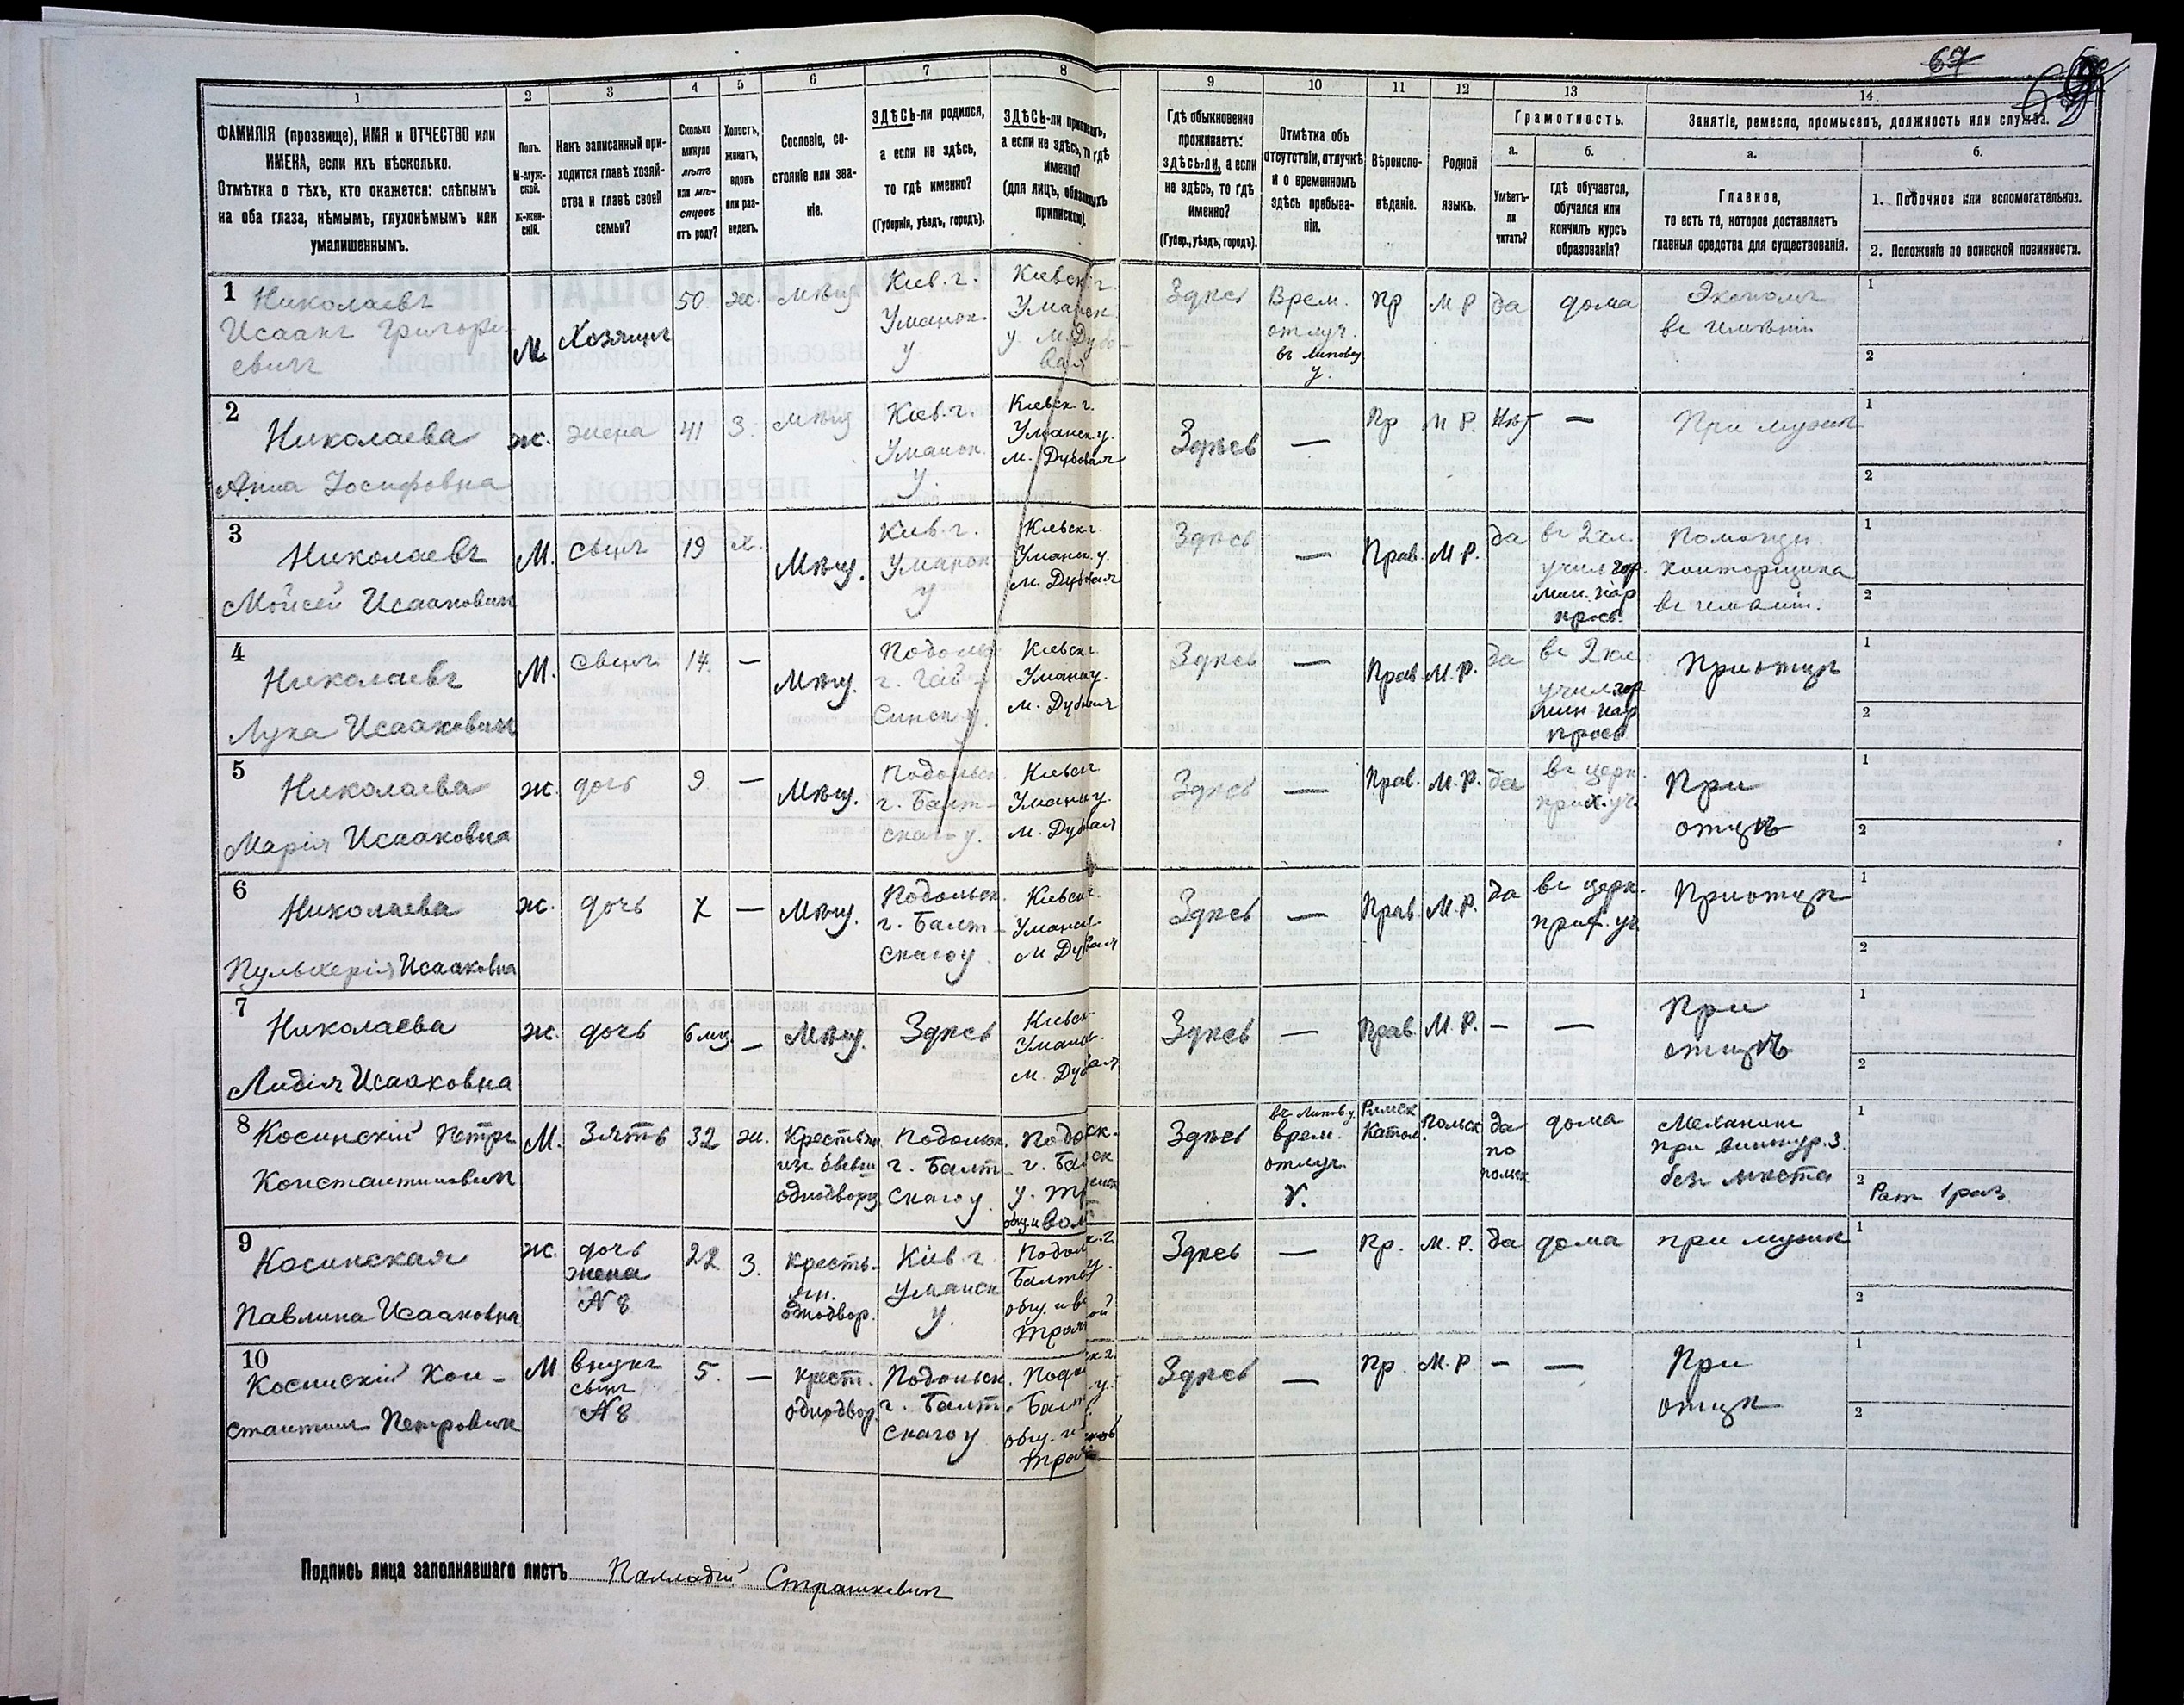 67
69
1
2
3
4
5
6
7
8
9
10
11
12
13
14
ФАМИЛІЯ (прозвище), ИМЯ и ОТЧЕСТВО или
ИМЕНА, если ихъ нѣсколько.
Отмѣтка о тѣхъ, кто окажется: слѣпымъ
на оба глаза, нѣмымъ, глухонѣмымъ или
умалишеннымъ.
Полъ.
М-муж-
ской.
Ж-жен-
скій.
Какъ записанный при-
ходится главѣ хозяй-
ства и главѣ своей
семьи?
Сколько
минуло
лѣтъ
или мѣ-
сяцевъ
отъ роду?
Холостъ,
женатъ,
вдовъ
или раз-
веденъ.
Сословіе, со-
стояніе или зва-
ніе.
ЗДѢСЬ-ли родился,
а если не здѣсь,
то гдѣ именно?
(Губернія, уѣздъ, городъ).
ЗДѢСЬ-ли приписанъ,
а если не здѣсь, то гдѣ
именно?
(для лицъ, обязанныхъ
припискою).
Гдѣ обыкновенно
проживаетъ:
здѣсь-ли, а если
не здѣсь, то гдѣ
именно?
(Губер., уѣздъ, городъ).
Отмѣтка объ
отсутствіи, отлучкѣ
и о временномъ
здѣсь пребыва-
ніи.
Вѣроиспо-
вѣданіе.
Родной
языкъ.
Грамотность.
а.
Умѣетъ-
ли
читать?
б.
гдѣ обучается,
обучался или
кончилъ курсъ
образованія?
Занятіе, ремесло, промыселъ, должность или служба.
а.
Главное,
то есть то, которое доставляетъ
главныя средства для существованія.
б.
1. Побочное или вспомогательное.
2. Положеніе по воинской повинности.
1 Николаевъ
Исаакъ Григорі-
евичъ
М
Хозяинъ
50
ж.
мѣщ
Кіев. г.
Уманск
у
Кіевск. г.
Уманск
у м. Дубо-
вая
Здѣсь
Врем.
отлуч.
въ Липовец
у.
Пр
М Р
да
дома
Экономъ
въ имѣніи
1
2
2
Николаева
Анна Іосифовна
ж.
жена
41
З.
мѣщ
Кіев. г.
Уманск.
у.
Кіевск. г.
Уманск. у.
м. Дубовая
Здѣсь
—
Пр
М Р.
Нѣт
—
При мужѣ
1
2
3
Николаевъ
Мойсей Исааковичъ
М.
сынъ
19
х.
Мѣщ.
Кіев. г.
Уманск
у
Кіевск г.
Уманск. у.
м. Дубовая
Здѣсь
—
Прав.
М. Р.
да
въ 2 кл.
учил гор.
мин. нар
просв.
Помощн.
конторщика
въ имѣніи.
1
2
4
Николаевъ
Лука Исааковичъ
М.
сынъ
14.
—
Мѣщ.
Подольс
г. Гай-
синск у.
Кіевск г.
Уман у.
м. Дубовая
Здѣсь
—
Прав.
М. Р.
да
въ 2 кл
учил гор.
мин нар
просв
При отцѣ
1
2
5
Николаева
Марія Исааковна
ж.
дочь
9
—
Мѣщ.
Подольск.
г. Балт-
скаго у.
Кіевск г.
Уман у.
м. Дубовая
Здѣсь
—
Прав.
М. Р.
да
въ церк.
прих. уч.
При
отцѣ
1
2
6
Николаева
Пульхерія Исааковна
ж.
дочь
7
—
Мѣщ.
Подольск.
г. Балт-
скаго у.
Кіевск г.
Уманск
м Дубовая
Здѣсь
—
Прав
М. Р.
да
въ церк.
прих. уч
При отцѣ
1
2
7
Николаева
Лидія Исааковна
ж.
дочь
6 мц.
—
Мѣщ.
Здѣсь
Кіевск
Уманск.
м. Дубовая
Здѣсь
—
Прав.
М. Р.
—
—
При
отцѣ
1
2
8 Косинскій Петръ
Константиновичъ
М.
Зять
32
ж.
Крестьян
изъ бывш
однодворц
Подольск.
г. Балт-
скаго у.
Здѣсь
въ Липов у.
врем.
отлуч.
Римск
Катол
Польск.
да
по
польск
дома
Механикъ
при винокур. З.
безъ мѣста
1
2 Рат. 1 раз.
9
Косинская
Павлина Исааковна
ж.
дочь
жена
№ 8
22
З.
кресть-
ян.
однодвор.
Кіев. г.
Уманск
у.
Здѣсь
—
Пр.
М. Р.
да
дома
при мужѣ
1
2
10
Косинскій Кон-
стантинъ Петровичъ
М
внукъ
сынъ
№ 8
5.
—
Крест.
однодвод.
Подольск.
г. Балт
скаго у
Здѣсь
—
Пр.
М. Р
—
—
При
отцѣ
1
2
Подпись лица заполнявшаго листъ Палладій Страшкевичъ